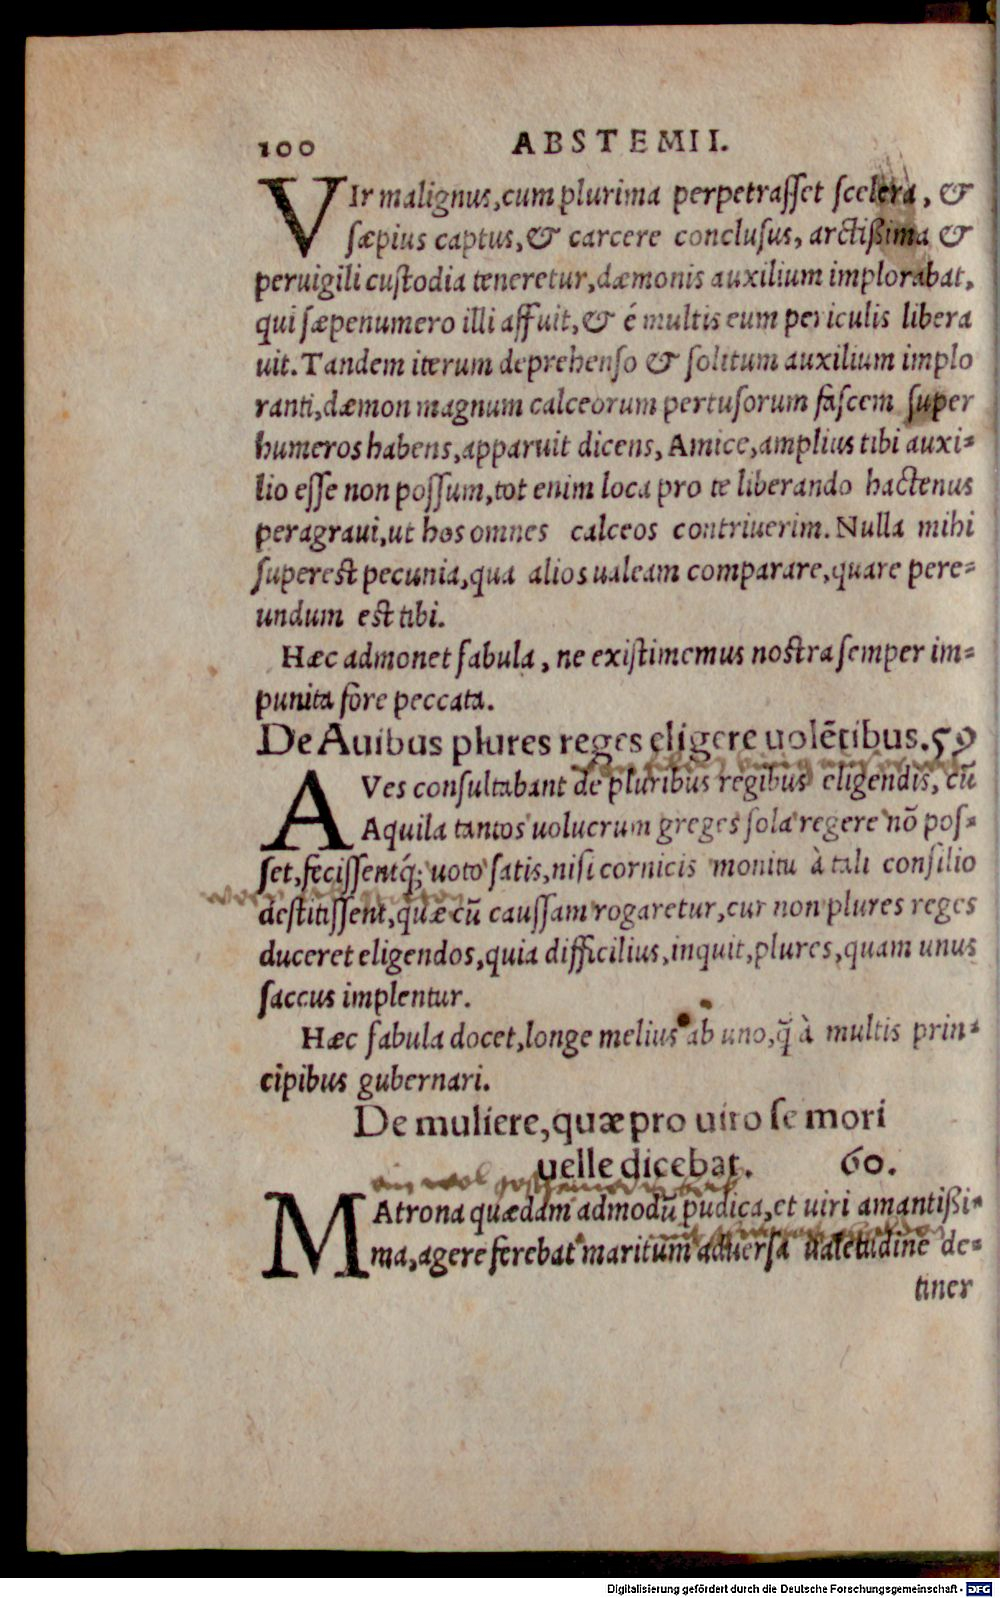 100 ABSTEMII.
VIr malignus, cum plurima perpetrasset scelera, &
sæpius captus, & carcere conclusus, arctißima &
peruigili custodia teneretur, dæmonis auxilium implorabat,
qui sæpenumero illi affuit, & é multis eum periculis libera
uit. Tandem iterum deprehenso & solitum auxilium implo
ranti, dæmon magnum calceorum pertusorum fascem super
humeros habens, apparuit dicens, Amice, amplius tibi auxi-
lio esse non possum, tot enim loca pro te liberando hactenus
peragraui, ut hos omnes calceos contriuerim. Nulla mihi
superest pecunia, qua alios ualeam comparare, quare pere-
undum est tibi.
Hæc admonet fabula, ne existimemus nostra semper im-
punita fore peccata.
De Auibus plures reges eligere uolētibus. 59
AVes consultabant de pluribus regibus eligendis, cū
Aquila tantos uolucrum greges sola regere nō pos-
set, fecissentq́; uoto satis, nisi cornicis monitu à tali consilio
destitissent, quæ cū caussam rogaretur, cur non plures reges
duceret eligendos, quia difficilius, inquit, plures, quam unus
saccus implentur.
Hæc fabula docet, longe melius ab uno, q̃ à multis prin-
cipibus gubernari.
De muliere, quæ pro uiro se mori
uelle dicebat. 60.
MAtrona quædam admodū pudica, et uiri amantißi-
ma, agere ferebat maritum aduersa ualetudine de-
tiner
Digitalisierung gefördert durch die Deutsche Forschungsgemeinschaft - DFG